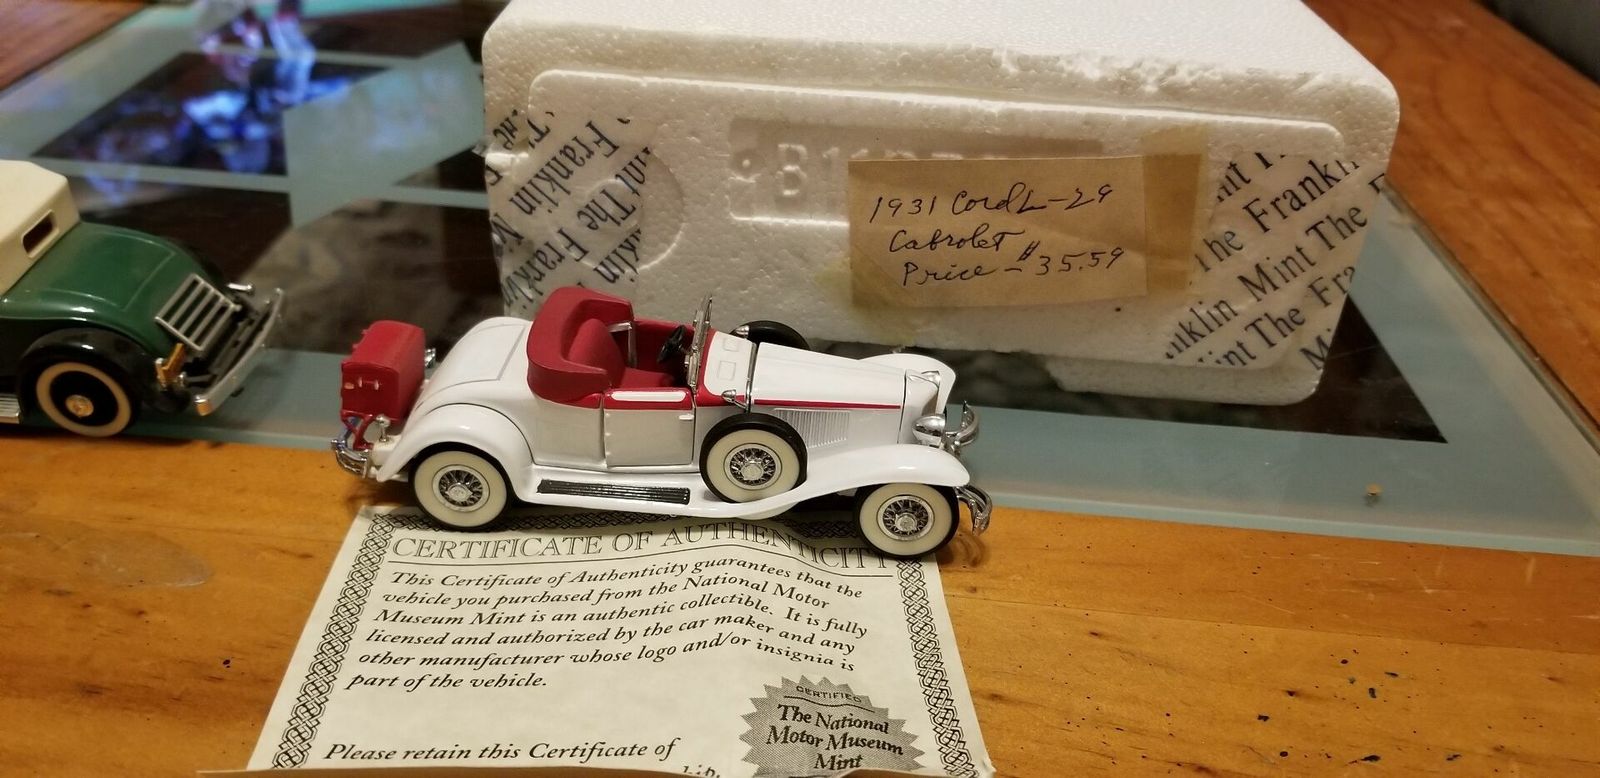 The Franklin
Mint The
Franklin
1931 Cord L-29
Cabrolet
Price - $35.59
The Franklin
Mint The
CERTIFICATE OF AUTHENTICITY
This Certificate of Authenticity guarantees that the
vehicle you purchased from the National Motor
Museum Mint is an authentic collectible. It is fully
licensed and authorized by the car maker and any
other manufacturer whose logo and/or insignia is
part of the vehicle.
Please retain this Certificate of
CERTIFIED
The National
Motor Museum
Mint